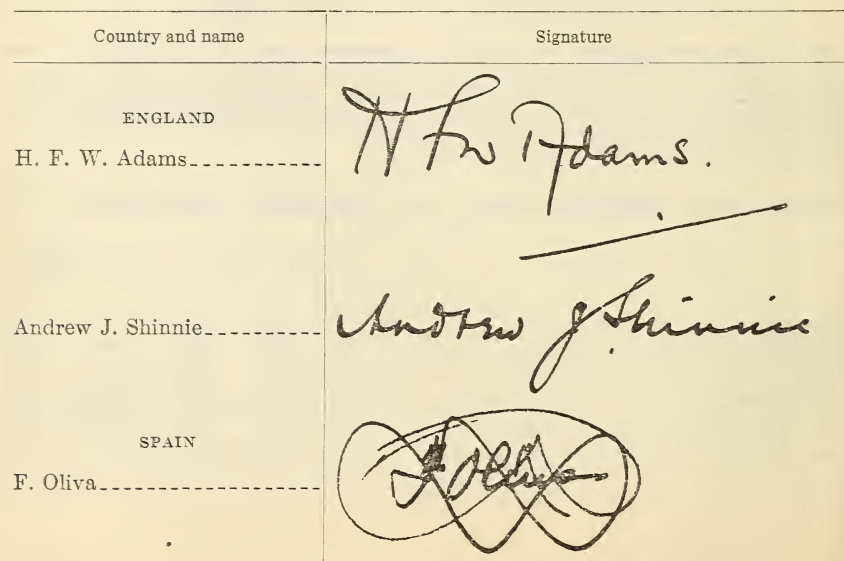 Country and name Signature
ENGLAND
H. F. W. Adams H F W Adams.
Andrew J. Shinnie Andrew J Shinnie
SPAIN
F. Oliva F. Oliva